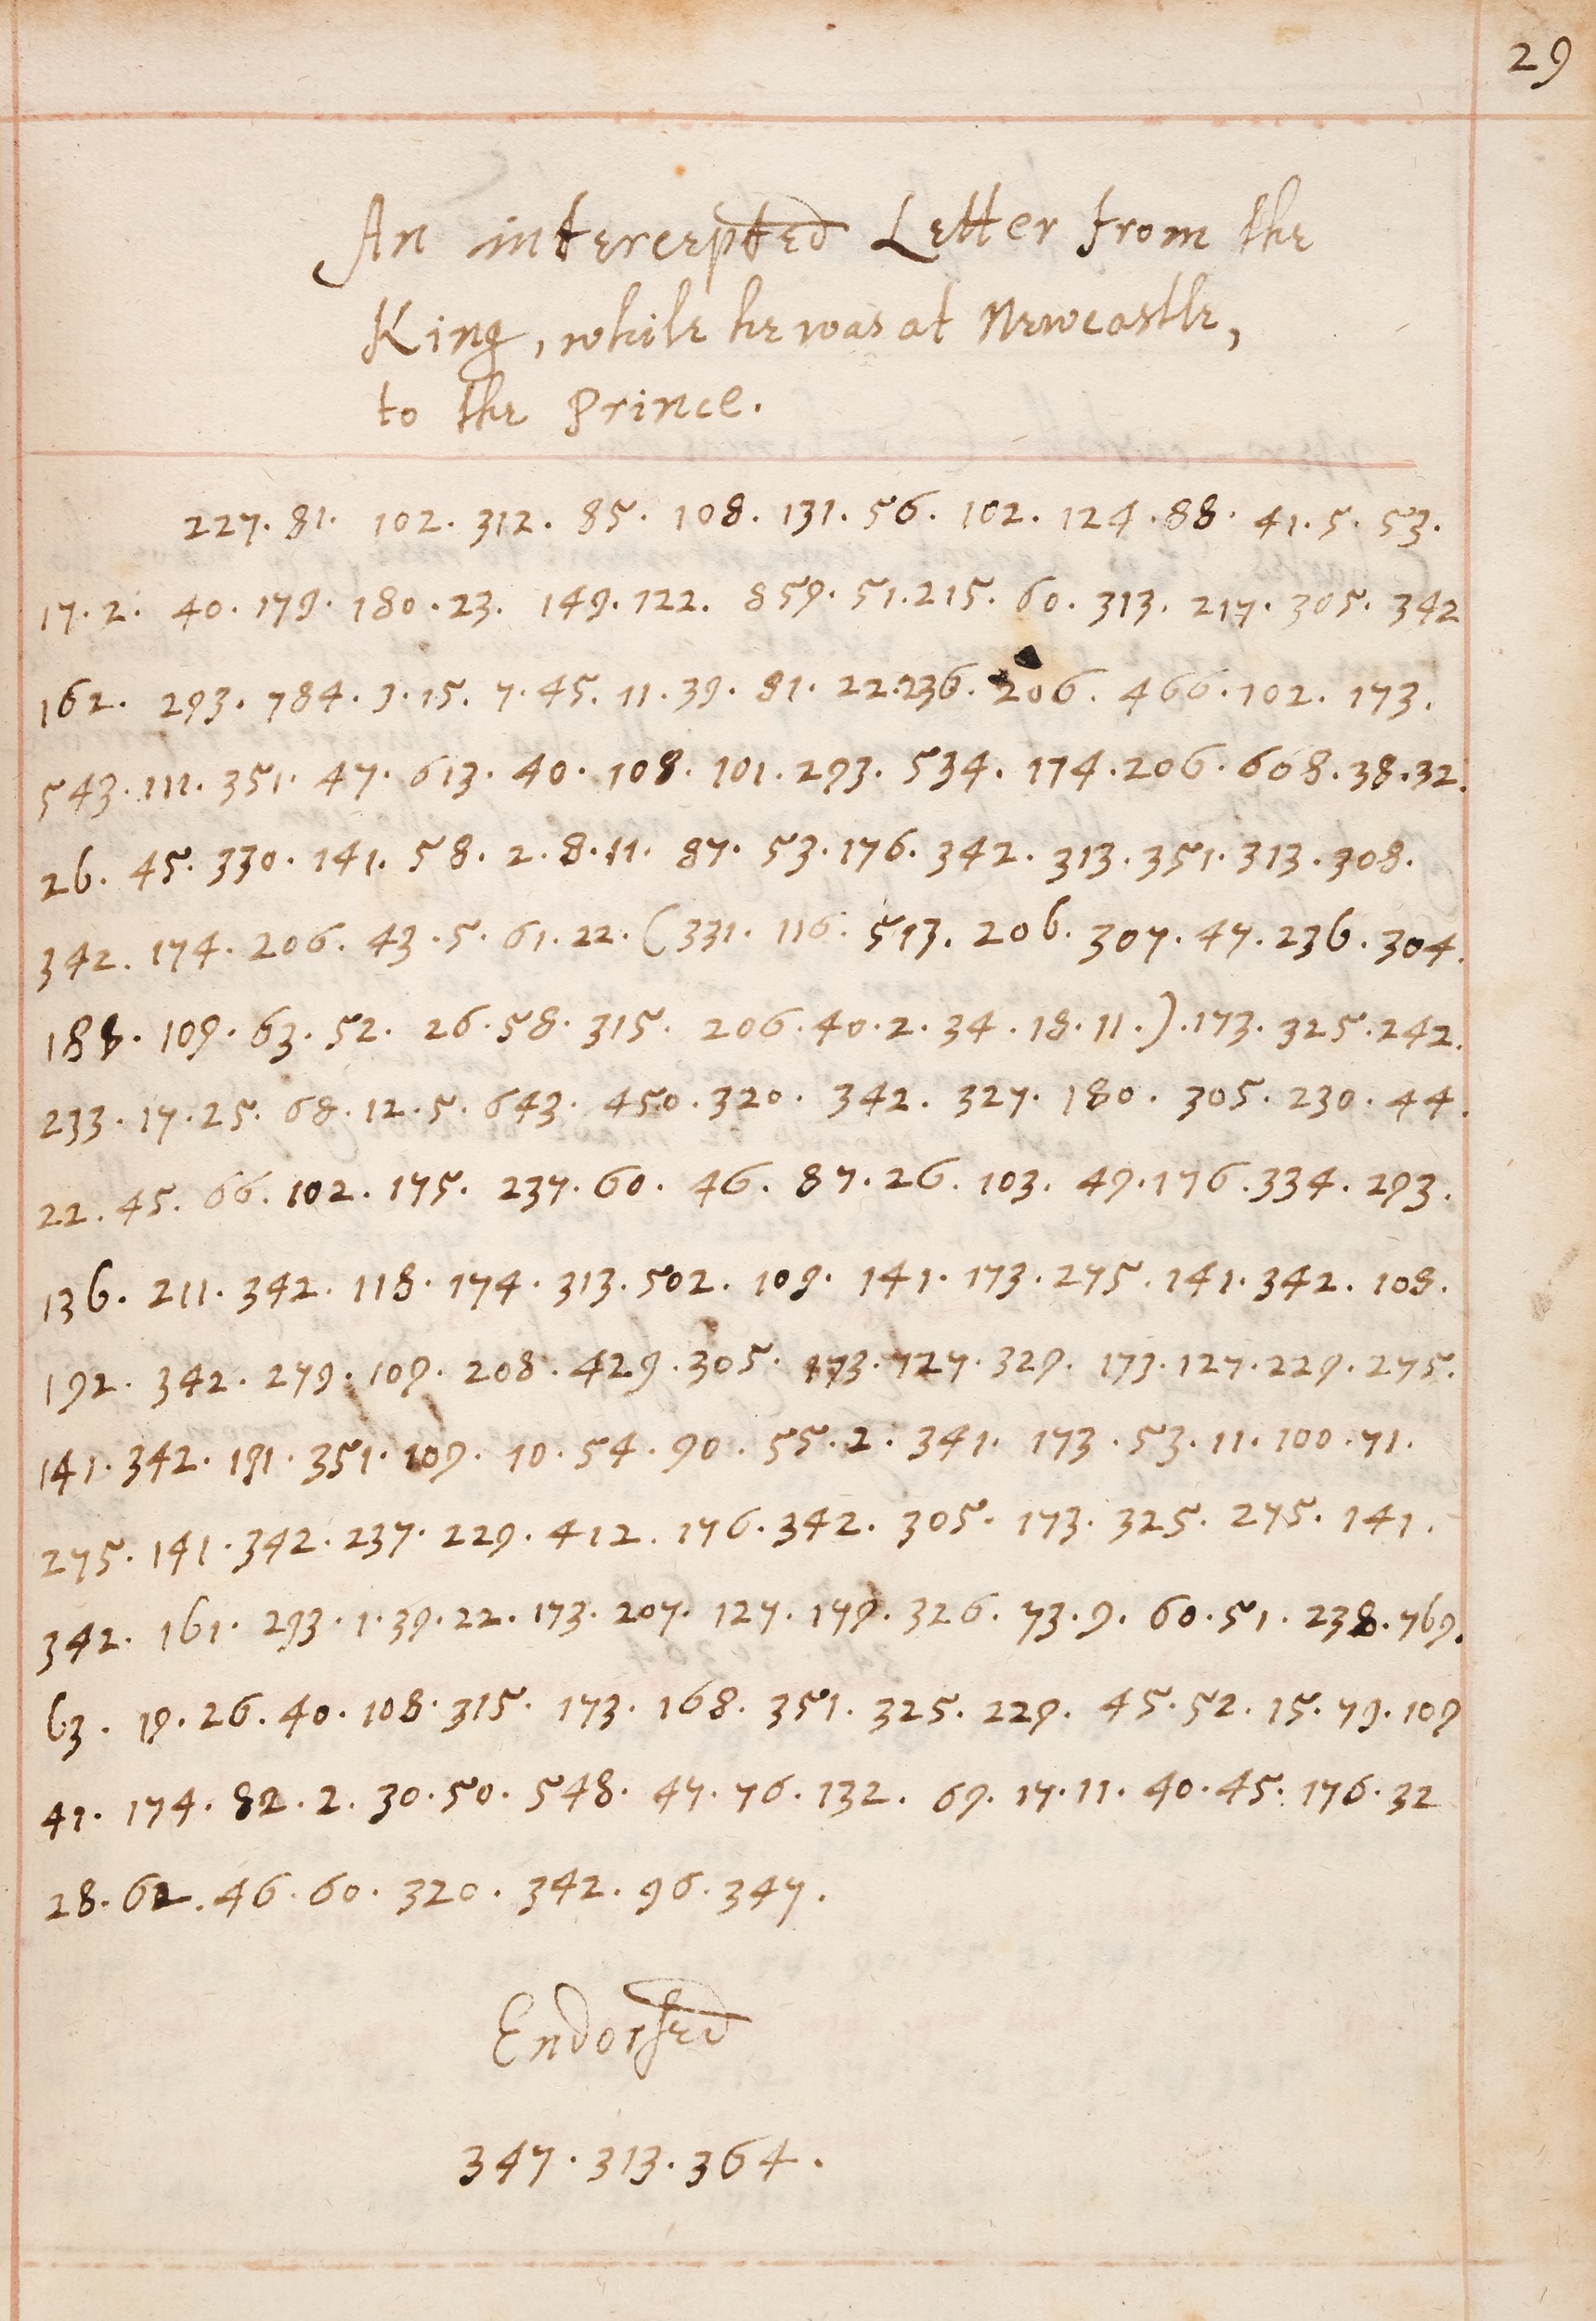 29
An intercepted Letter from the
King, while he was at Newcastle,
to the Prince.
227. 81. 102. 312. 85. 108. 131. 56. 102. 124. 88. 41. 5. 53.
17. 2. 40. 179. 180. 23. 149. 122. 859. 51. 215. 60. 313. 217. 305. 342
162. 293. 784. 3. 15. 7. 45. 11. 39. 81. 22. 236. 206. 466. 102. 173.
543. 111. 351. 47. 613. 40. 108. 101. 293. 534. 174. 206. 608. 38. 32.
26. 45. 330. 141. 58. 2. 8. 11. 87. 53. 176. 342. 313. 351. 313. 308.
342. 174. 206. 43. 5. 61. 22. (331. 116. 513. 206. 307. 47. 236. 304.
188. 109. 63. 52. 26. 58. 315. 206. 40. 2. 34. 18. 11.). 173. 325. 242.
233. 17. 25. 68. 12. 5. 643. 450. 320. 342. 327. 180. 305. 230. 44.
22. 45. 66. 102. 175. 237. 60. 46. 87. 26. 103. 49. 176. 334. 293.
136. 211. 342. 118. 174. 313. 502. 109. 141. 173. 275. 141. 342. 108.
192. 342. 279. 109. 208. 429. 305. 173. 727. 329. 173. 127. 229. 275.
141. 342. 191. 351. 109. 10. 54. 90. 55. 2. 341. 173. 53. 11. 100. 71.
275. 141. 342. 237. 229. 412. 176. 342. 305. 173. 325. 275. 141.
342. 161. 293. 1. 39. 22. 173. 207. 127. 179. 326. 73. 9. 60. 51. 238. 769.
63. 19. 26. 40. 108. 315. 173. 168. 351. 325. 229. 45. 52. 15. 79. 109
41. 174. 82. 2. 30. 50. 548. 47. 76. 132. 69. 17. 11. 40. 45. 176. 32
28. 62. 46. 60. 320. 342. 96. 347.
Endorsed
347. 313. 364.